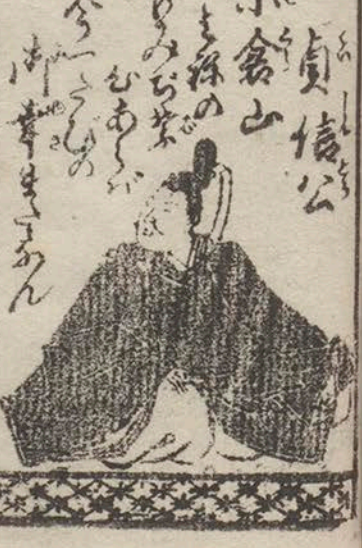 貞信公
小倉山
みねの
もみぢ葉
心あらば
今一たびの
御幸またなん